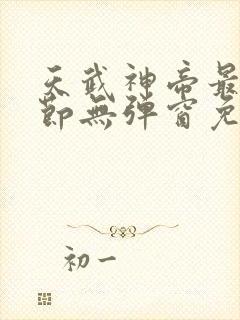 天武神帝最
節無彈窗免
初一